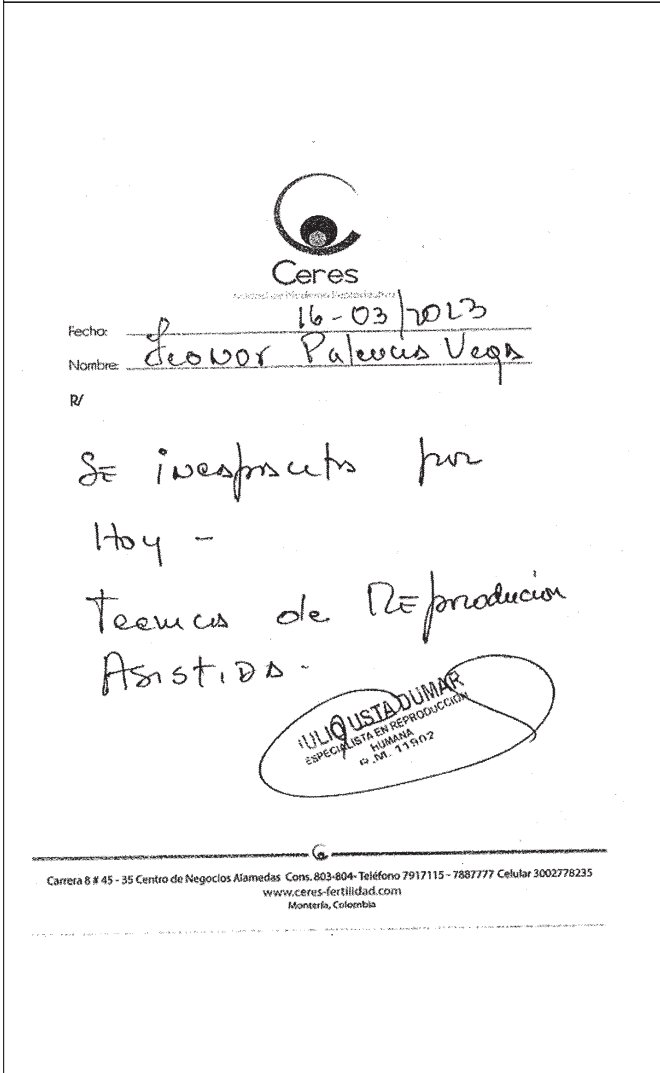 Ceres
Unidad de Medicina Reproductiva
Fecha: 16-03/2023
Nombre: Leonor Palencia Vega
R/
SE incapacita por
Hoy -
Tecnicas de REproducion
ASistiDA.
JULIO USTA DUMAR
ESPECIALISTA EN REPRODUCCIÓN
HUMANA
R.M. 11902
Carrera 8 # 45 - 35 Centro de Negocios Alamedas Cons. 803-804- Teléfono 7917115 - 7887777 Celular 3002778235
www.ceres-fertilidad.com
Montería, Colombia